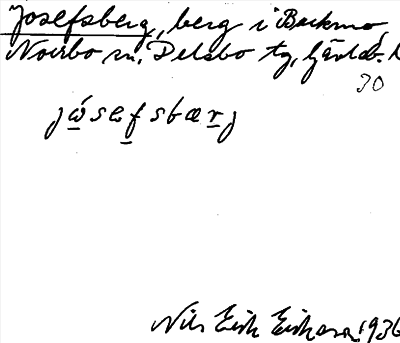 Josefsberg, berg i Backmo
Norrbo sn, Delsbo tg, Gävleb. l
30
jώsɛfsbærj
Nils Erik Eriksson 1936